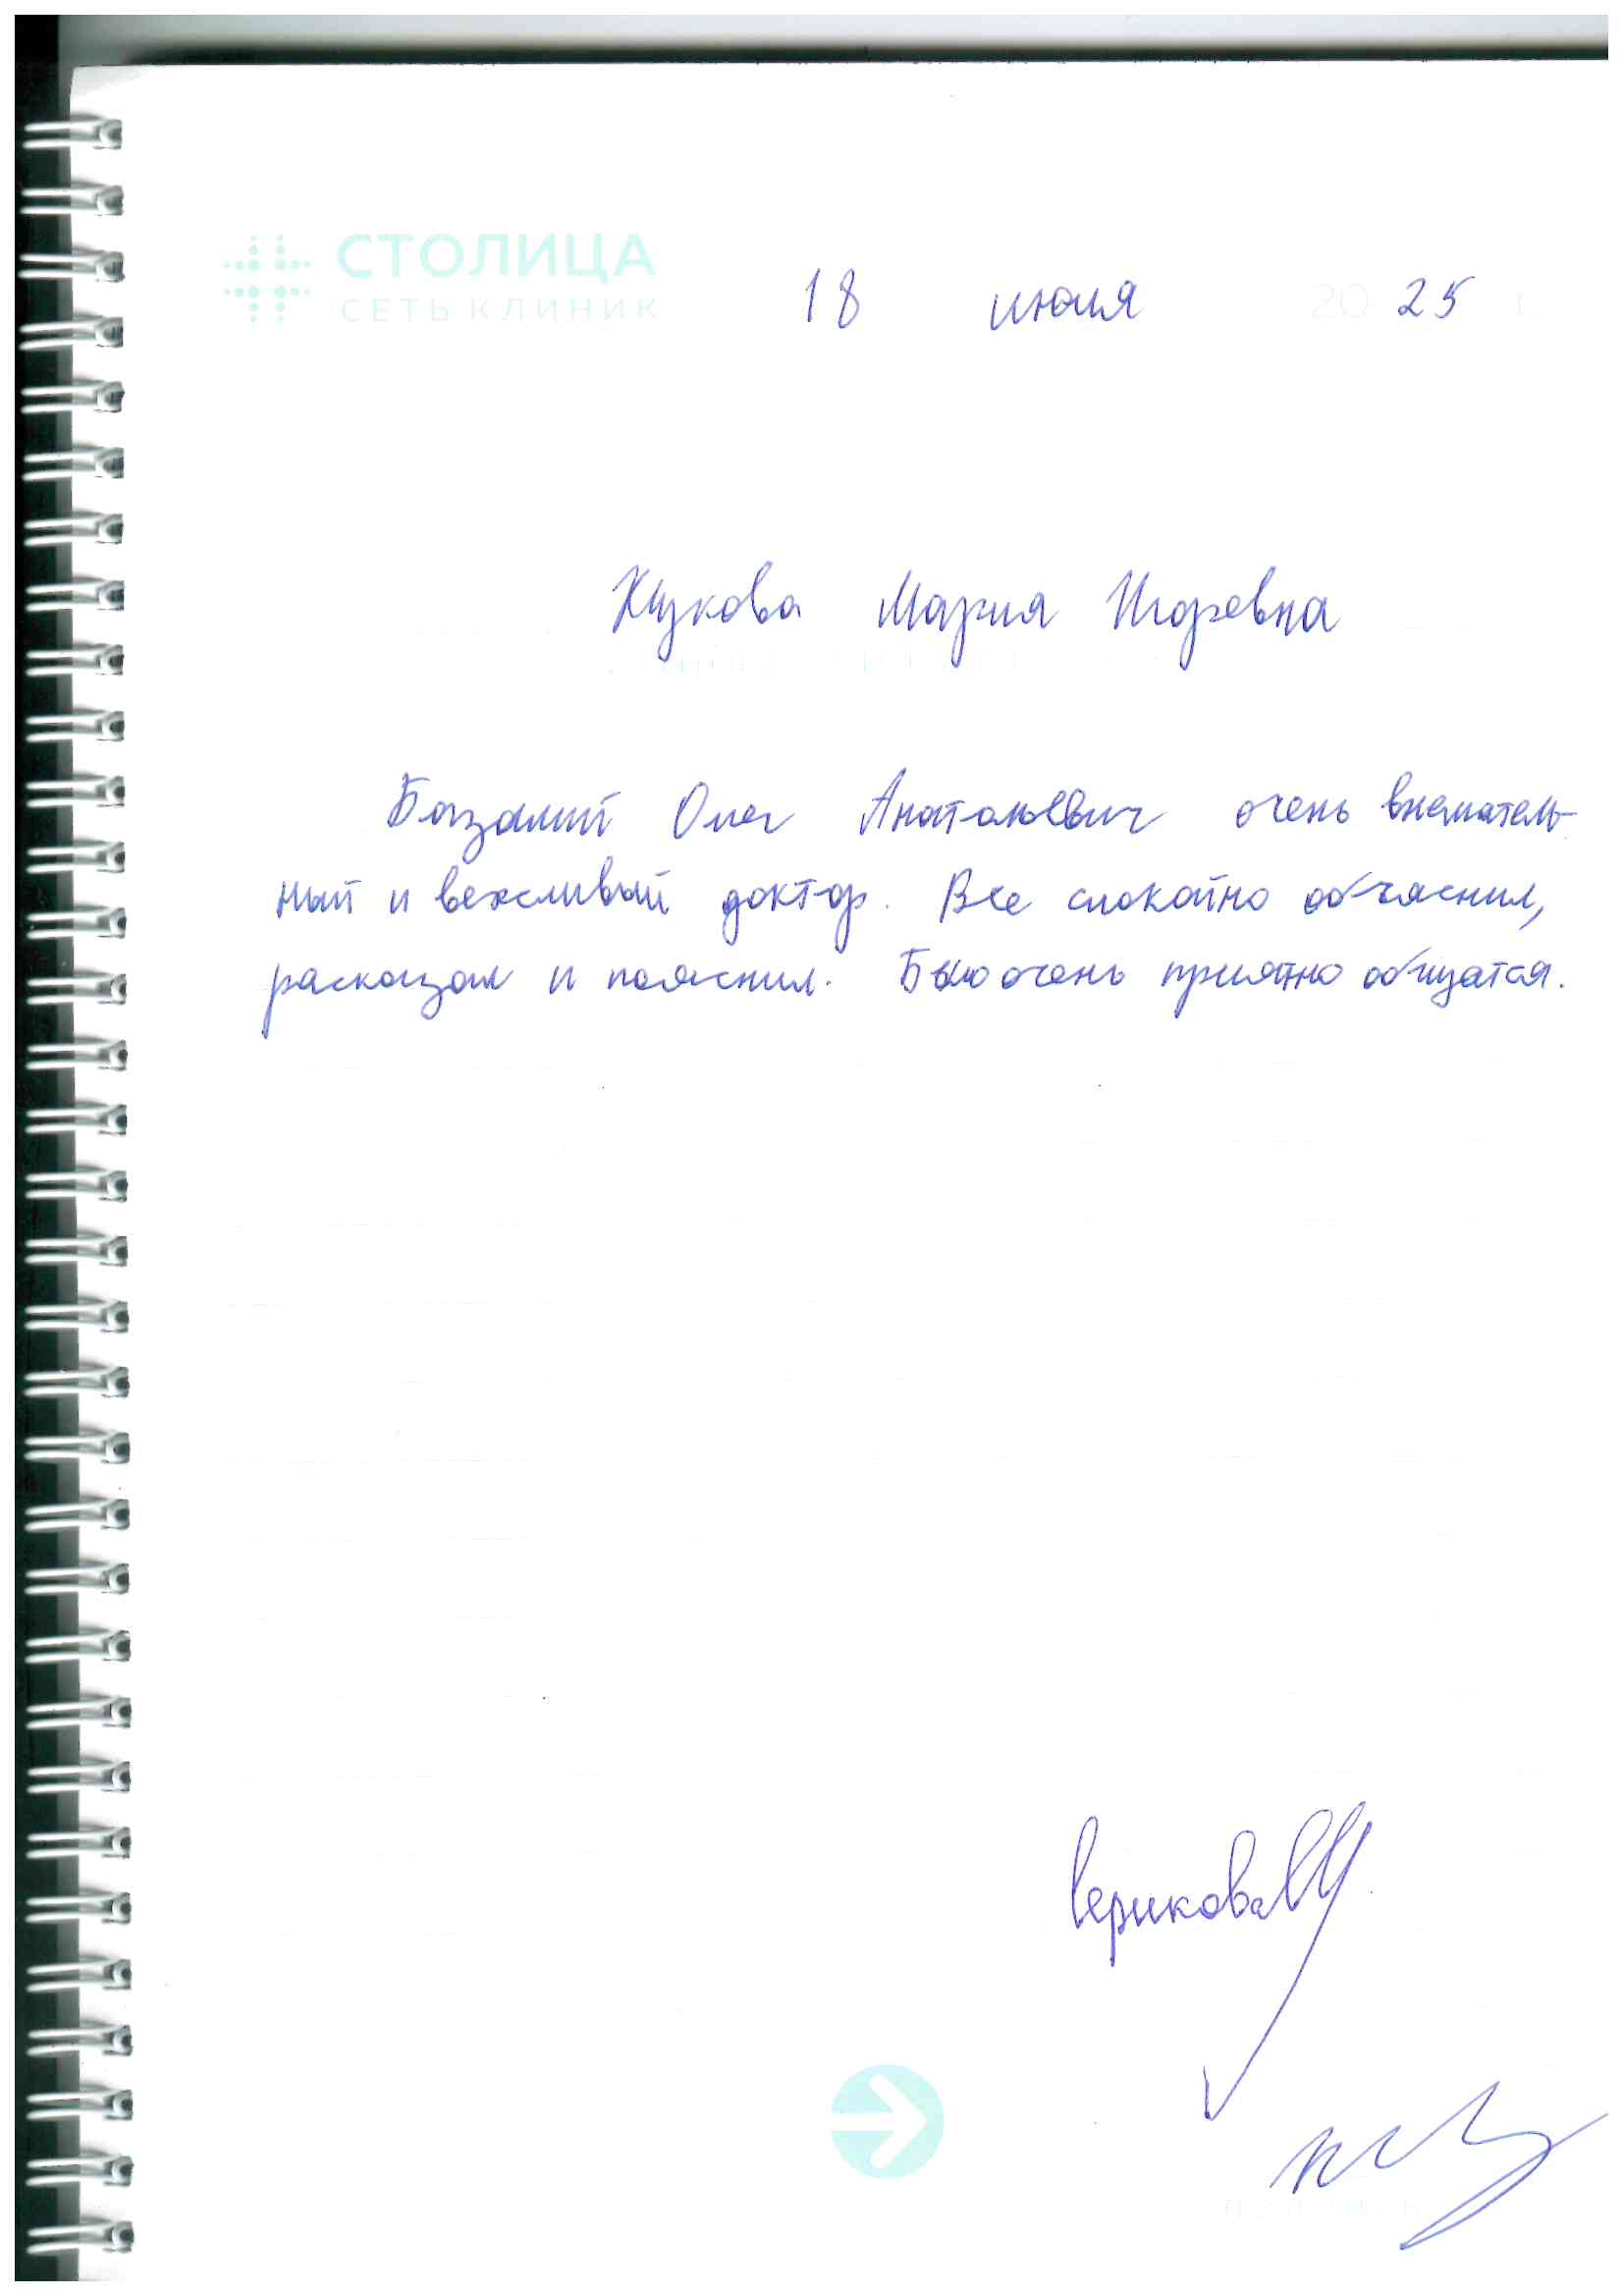 СТОЛИЦА
СЕТЬ КЛИНИК
18 июля 2025
Жукова Мария Игоревна
Олег Анатольевич очень внематель-
ный и вежливый доктор. Все спокойно объяснил,
расказал и пояснил. Было очень приятно общатся.